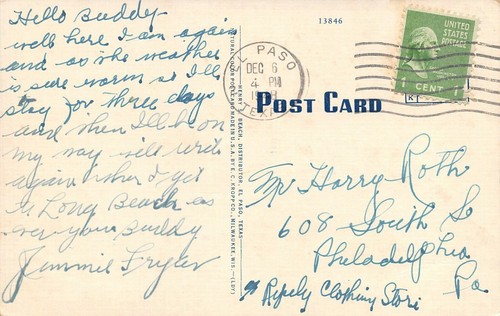 Hello Buddy
well here I am again
and as the weather
is sure warm so I'll
stay for three days
and then I'll be on
my way will write
again when I get
to Long Beach as
ever your Buddy
Jimmie
13846
EL PASO
DEC 6
4 PM
TEX.
UNITED
STATES
POSTAGE
1 CENT 1
POST CARD
HENRY S. BEACH, DISTRIBUTOR, EL PASO, TEXAS
NATURAL COLOR POST CARD MADE IN U.S.A. BY E. C. KROPP CO., MILWAUKEE, WIS.
Mr Harry Roth
608 South St
Philadelphia
Pa
% Ripely Clothing Store